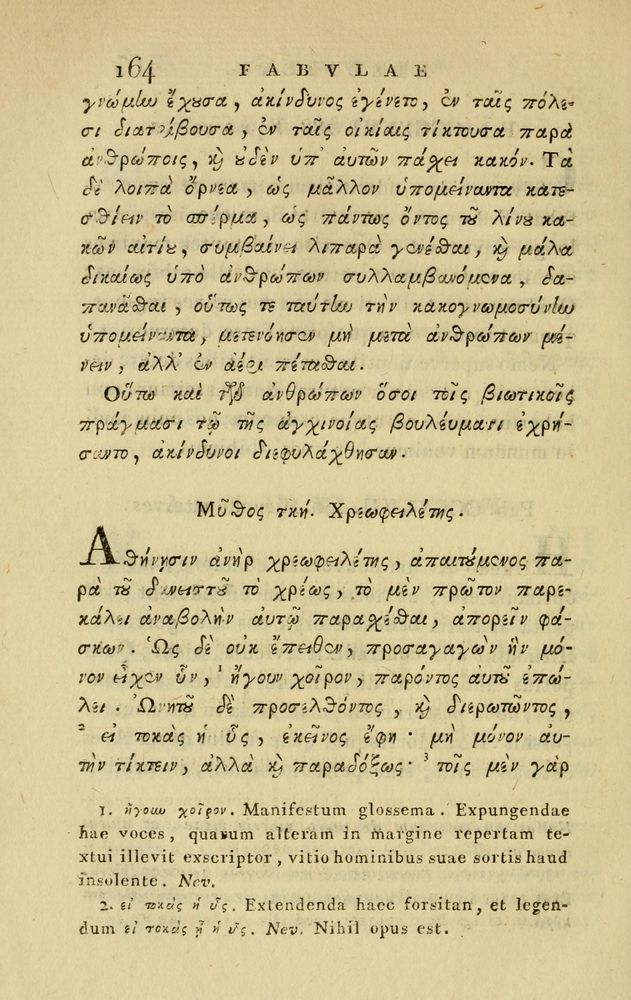 164 FABVLAE
γνώμην ἔχουσα, ἀκίνδυνος ἐγένετο, ἐν ταῖς πόλε-
σι διατρίβουσα, ἐν ταῖς οἰκίαις τίκτουσα παρὰ
ἀνθρώποις, καὶ οὐδὲν ὑπ' αὐτῶν πάσχει κακόν. Τὰ
δὲ λοιπὰ ὄρνεα, ὡς μᾶλλον ὑπομείναντα κατε-
σθίειν τὸ σπέρμα, ὡς πάντως ὄντος τοῦ λίνου κα-
κῶν αἰτίου, συμβαίνει λιπαρὰ γενέσθαι, καὶ μάλα
δικαίως ὑπὸ ἀνθρώπων συλλαμβανόμενα, δα-
πανᾶσθαι, οὕτως τε ταύτην τὴν κακογνωμοσύνην
ὑπομείναντα, μετενόησεν μὴ μετὰ ἀνθρώπων μέ-
νειν, ἀλλ' ἐν ἀέρι πέτασθαι.
Οὕτω καὶ τῶν ἀνθρώπων ὅσοι τοῖς βιωτικοῖς
πράγμασι τῷ τῆς ἀγχινοίας βουλεύματι ἐχρή-
σαντο, ἀκίνδυνοι διεφυλάχθησαν.
Μῦθος τκή. Χρεωφειλέτης.
Ἀθήνησιν ἀνὴρ χρεωφειλέτης, ἀπαιτούμενος πα-
ρὰ τοῦ δανειστοῦ τὸ χρέως, τὸ μὲν πρῶτον παρε-
κάλει ἀναβολὴν αὐτῷ παρασχέσθαι, ἀπορεῖν φά-
σκων. Ὡς δὲ οὐκ ἔπειθεν, προσαγαγὼν ἣν μό-
νον εἶχεν ὗν, ¹ ἤγουν χοῖρον, παρόντος αὐτοῦ ἐπώ-
λει. Ὠνητοῦ δὲ προσελθόντος, καὶ διερωτῶντος,
² εἰ τοκὰς ἡ ὗς, ἐκεῖνος ἔφη· μὴ μόνον αὐ-
τὴν τίκτειν, ἀλλὰ καὶ παραδόξως· ³ τοῖς μὲν γὰρ
1. ἤγουν χοῖρον. Manifestum glossema. Expungendae
hae voces, quarum alteram in margine repertam te-
xtui illevit exscriptor, vitio hominibus suae sortis haud
insolente. Nev.
2. εἰ τοκὰς ἡ ὗς. Extendenda haec forsitan, et legen-
dum εἰ τοκὰς ᾖ ἡ ὗς. Nev. Nihil opus est.